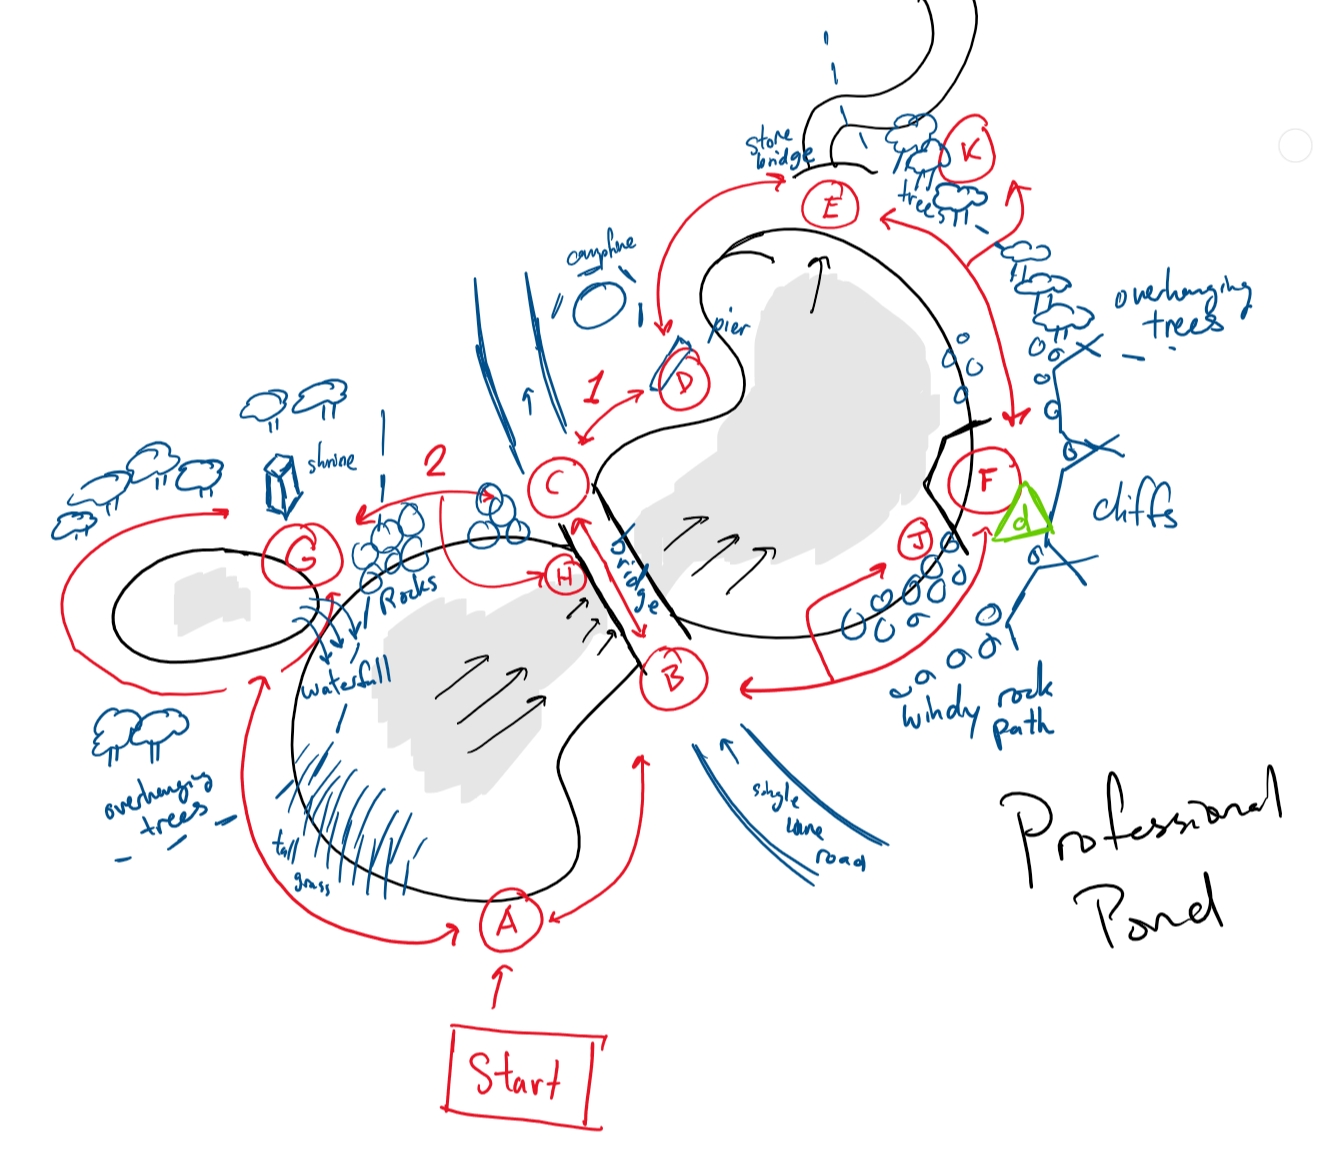 stone
bridge
K
E
trees
campfire
overhanging
trees
pier
1
D
2
shrine
C
F
d
cliffs
G
J
H
bridge
Rocks
waterfall
B
windy rock
path
overhanging
trees
single
lane
road
tall
grass
A
Professional
Pond
Start